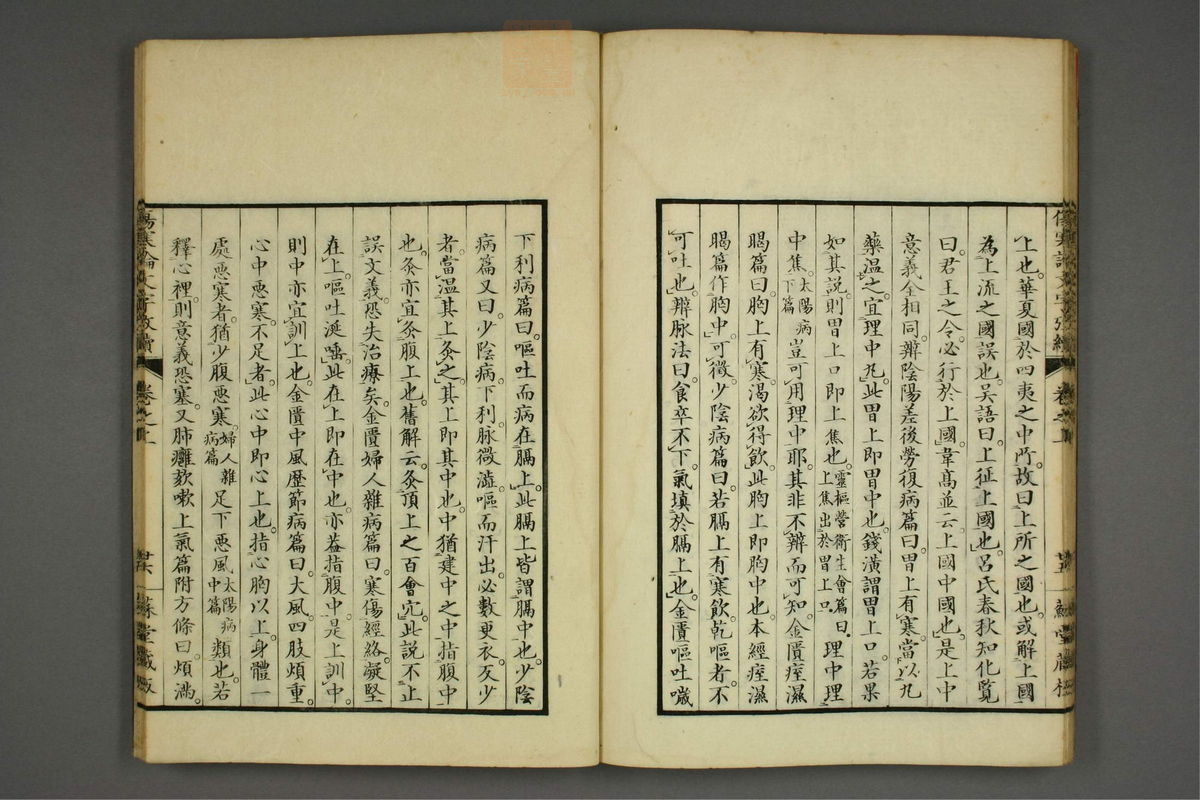 上也華夏國於四夷之中所故曰上所之國也或解上國
為上流之國誤也吳語曰上征上國也呂氏春秋知化覽
曰君王之令必行於上國韋高並云上國中國也是上中
意義全相同辨陰陽差後勞復病篇曰胃上有寒當以丸
藥溫之宜理中丸此胃上即胃中也錢潢謂胃上口若果
如其說則胃上口即上焦也靈樞營衛生會篇曰上焦出於胃上口理中理
中焦太陽病下篇豈可用理中耶其非不辨而可知金匱痓濕
暍篇曰胸上有寒渴欲得飲此胸上即胸中也本經痓濕
暍篇作胸中可徵少陰病篇曰若膈上有寒飲乾嘔者不
可吐也辨脉法曰食卒不下氣填於膈上也金匱嘔吐噦
下利病篇曰嘔吐而病在膈上此膈上皆謂膈中也少陰
病篇又曰少陰病下利脉微澁嘔而汗出必數更衣反少
者當溫其上灸之其上即其中也中猶建中之中指腹中
也灸亦宜灸腹上也舊解云灸頂上之百會穴此說不止
誤文義恐失治療矣金匱婦人雜病篇曰寒傷經絡凝堅
在上嘔吐涎唾此在上即在中也亦蓋指腹中是上訓中
則中亦宜訓上也金匱中風歷節病篇曰大風四肢煩重
心中惡寒不足者此心中即心上也指心胸以上身體一
處惡寒者猶少腹惡寒婦人雜病篇足下惡風太陽病中篇類也若
釋心裡則意義恐塞又肺癰欬嗽上氣篇附方條曰煩滿